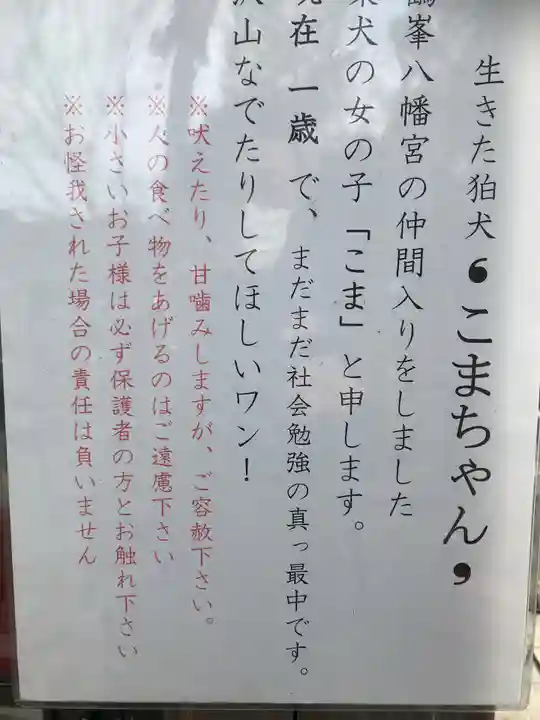 生きた狛犬❛こまちゃん❜
峯八幡宮の仲間入りをしました
犬の女の子「こま」と申します。
在 一歳 で、まだまだ社会勉強の真っ最中です。
山なでたりしてほしいワン!
※吠えたり、甘噛みしますが、ご容赦下さい。
※人の食べ物をあげるのはご遠慮下さい
※小さいお子様は必ず保護者の方とお触れ下さい
※お怪我された場合の責任は負いません